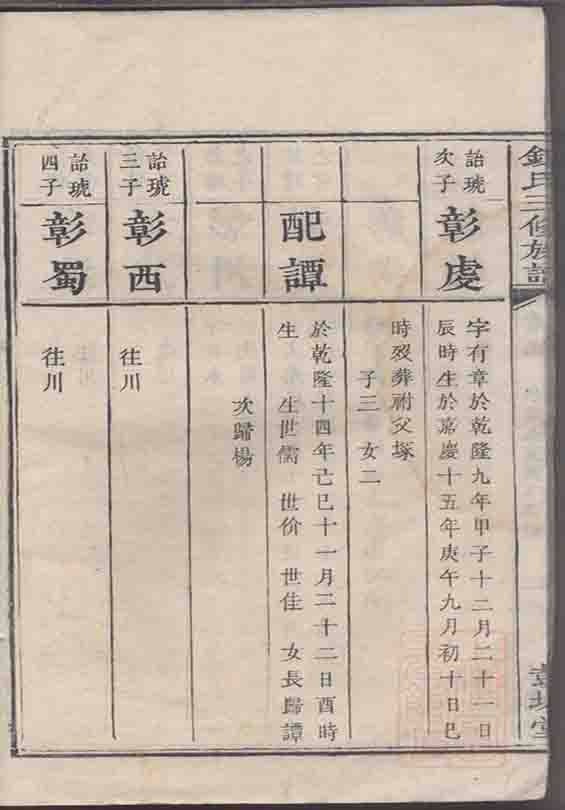 錢氏三修族譜
彭城堂
詒琥
次子
彰虔
字有章於乾隆九年甲子十二月二十一日
辰時生於嘉慶十五年庚午九月初十日巳
時歿葬祔父塚
子三 女二
配譚
於乾隆十四年己巳十一月二十二日酉時
生 生世儒 世价 世佳 女長歸譚
次歸楊
詒琥
三子
彰西
徃川
詒琥
四子
彰蜀
徃川